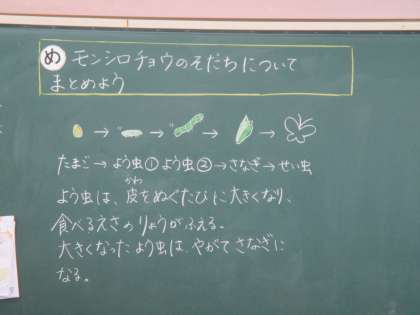 め モンシロチョウのそだちについて
まとめよう
→ → → →
たまご→よう虫①よう虫②→さなぎ→せい虫
かわ
よう虫は、皮をぬぐたびに大きくなり、
食べるえさのりょうがふえる。
大きくなったよう虫は、やがてさなぎに
なる。